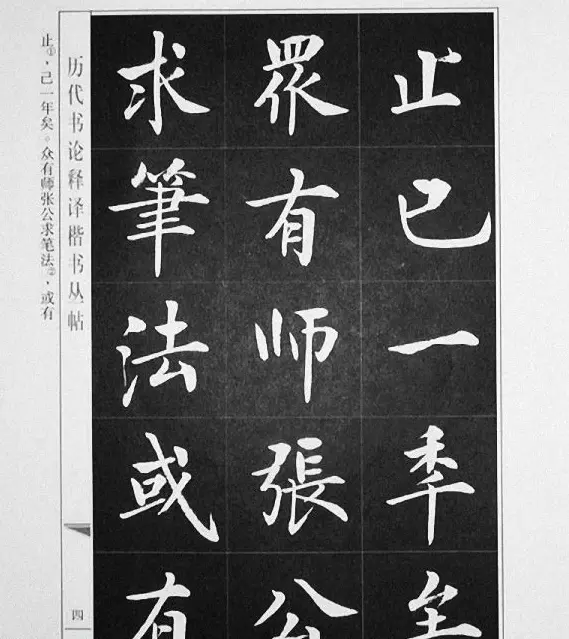 止已一年矣
众有师張公
求筆法或有
历代书论释译楷书丛帖
四
止①，己一年矣。众有师张公求笔法②，或有